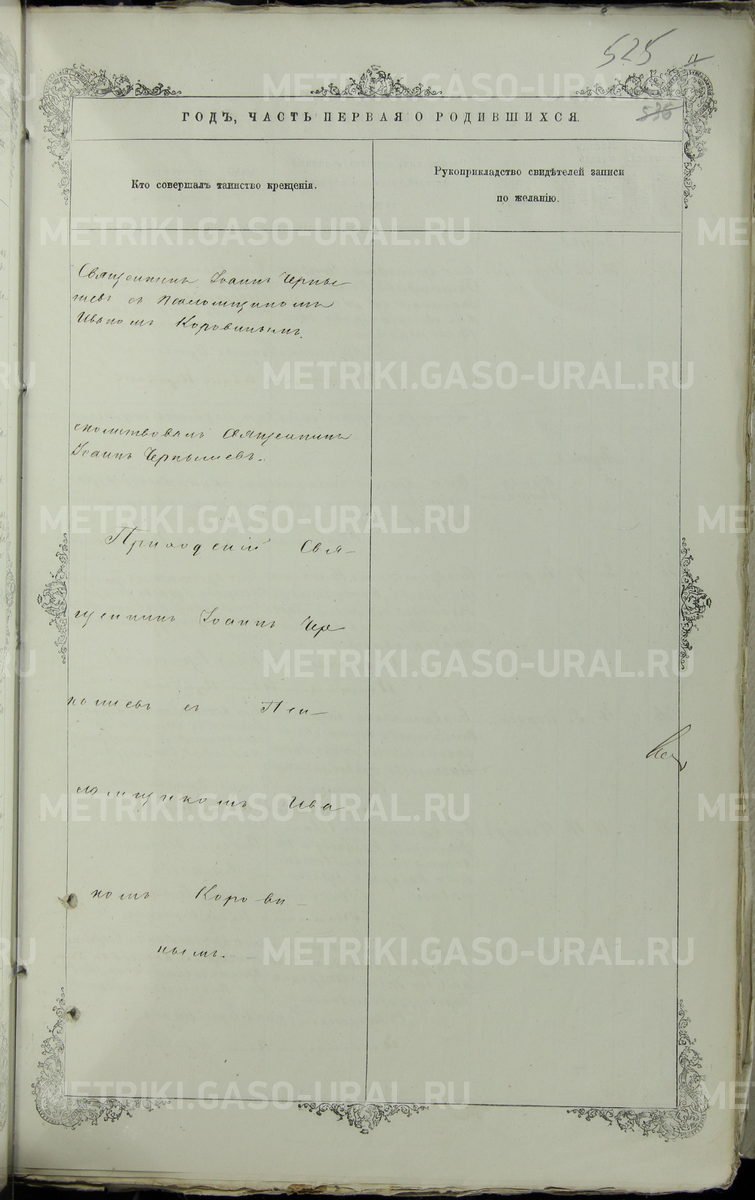 525
536
ГОДЪ, ЧАСТЬ ПЕРВАЯ О РОДИВШИХСЯ.
Кто совершалъ таинство крещенія.
Рукоприкладство свидѣтелей записи
по желанію.
Священникъ Іоаннъ Черны
шевъ съ псаломщикомъ
Иваномъ Коровинымъ.
смолитвовалъ священникъ
Іоаннъ Чернышевъ.
Приходскій Свя-
щенникъ Іоаннъ Чер
нышевъ съ Пса-
ломщикомъ Ива
номъ Корови-
нымъ.
METRIKI.GASO-URAL.RU